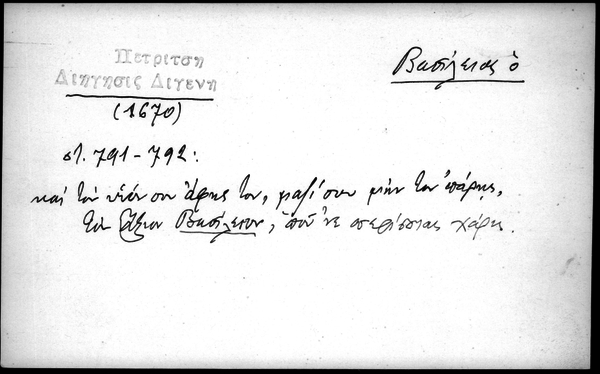 Πετριτση
Διηγησις Διγενη
(1670)
Βασίλειος ὁ
στ. 791-792:
καί τόν υἱόν σου ἄφης τον, μαζί σου μήν τόν ἐπάρῃς,
τόν ἄξιον Βασίλειον, ὁποῦ 'νε περίσσιας χάρις.